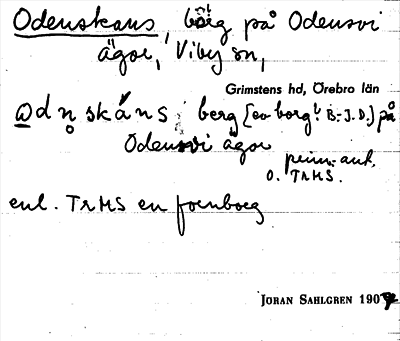 Odenskans, borg på Odensvi
ägor, Viby sn,
Grimstens hd, Örebro län
berg [ev borg! B.-J.D.] på
Odensvi ägor
prim. ant.
o. TRMS.
enl. TRMS en fornborg
JÖRAN SAHLGREN 190